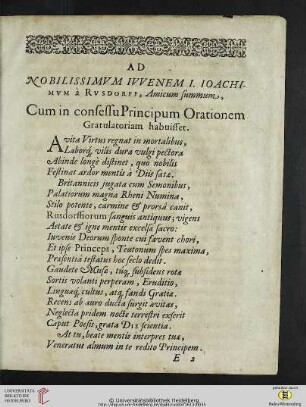 AD
NOBILISSIMVM IVVENEM I. IOACHI-
MVM à RVSDORFF, Amicum summum,
Cum in consessu Principum Orationem
Gratulatoriam habuisset.
Avita Virtus regnat in mortalibus,
Laborq́, vilis dura vulgi pectora
Abinde longè distinet, quo nobilis
Festinat ardor mentis à Diis sata.
Britannicis jugata cum Semonibus,
Palatiorum magna Rheni Numina,
Stilo potente, carmine & prorsá canit,
Rusdorffiorum sanguis antiquus; vigens
Aetate & igne mentis excelsa sacro:
Iuvenis Deorum sponte cui favent chori,
Et ipse Princeps, Teutonum spes maxima,
Præsentiâ testatus hoc seclo dedit.
Gaudete Musæ, tuq́, subsidens rota
Sortis volanti perperam, Eruditio,
Linguæq́, cultus, atq́, fandi Gratia.
Recens ab auro ducta surgit ævitas,
Neglecta pridem nocte terrestri exserit
Caput Poësis, grata Diis scientia.
At tu, beate mentis interpres tuæ,
Veneratus almum in te redito Principem.
E 2
UNIVERSITÄTS-
BIBLIOTHEK
HEIDELBERG
© Universitätsbibliothek Heidelberg